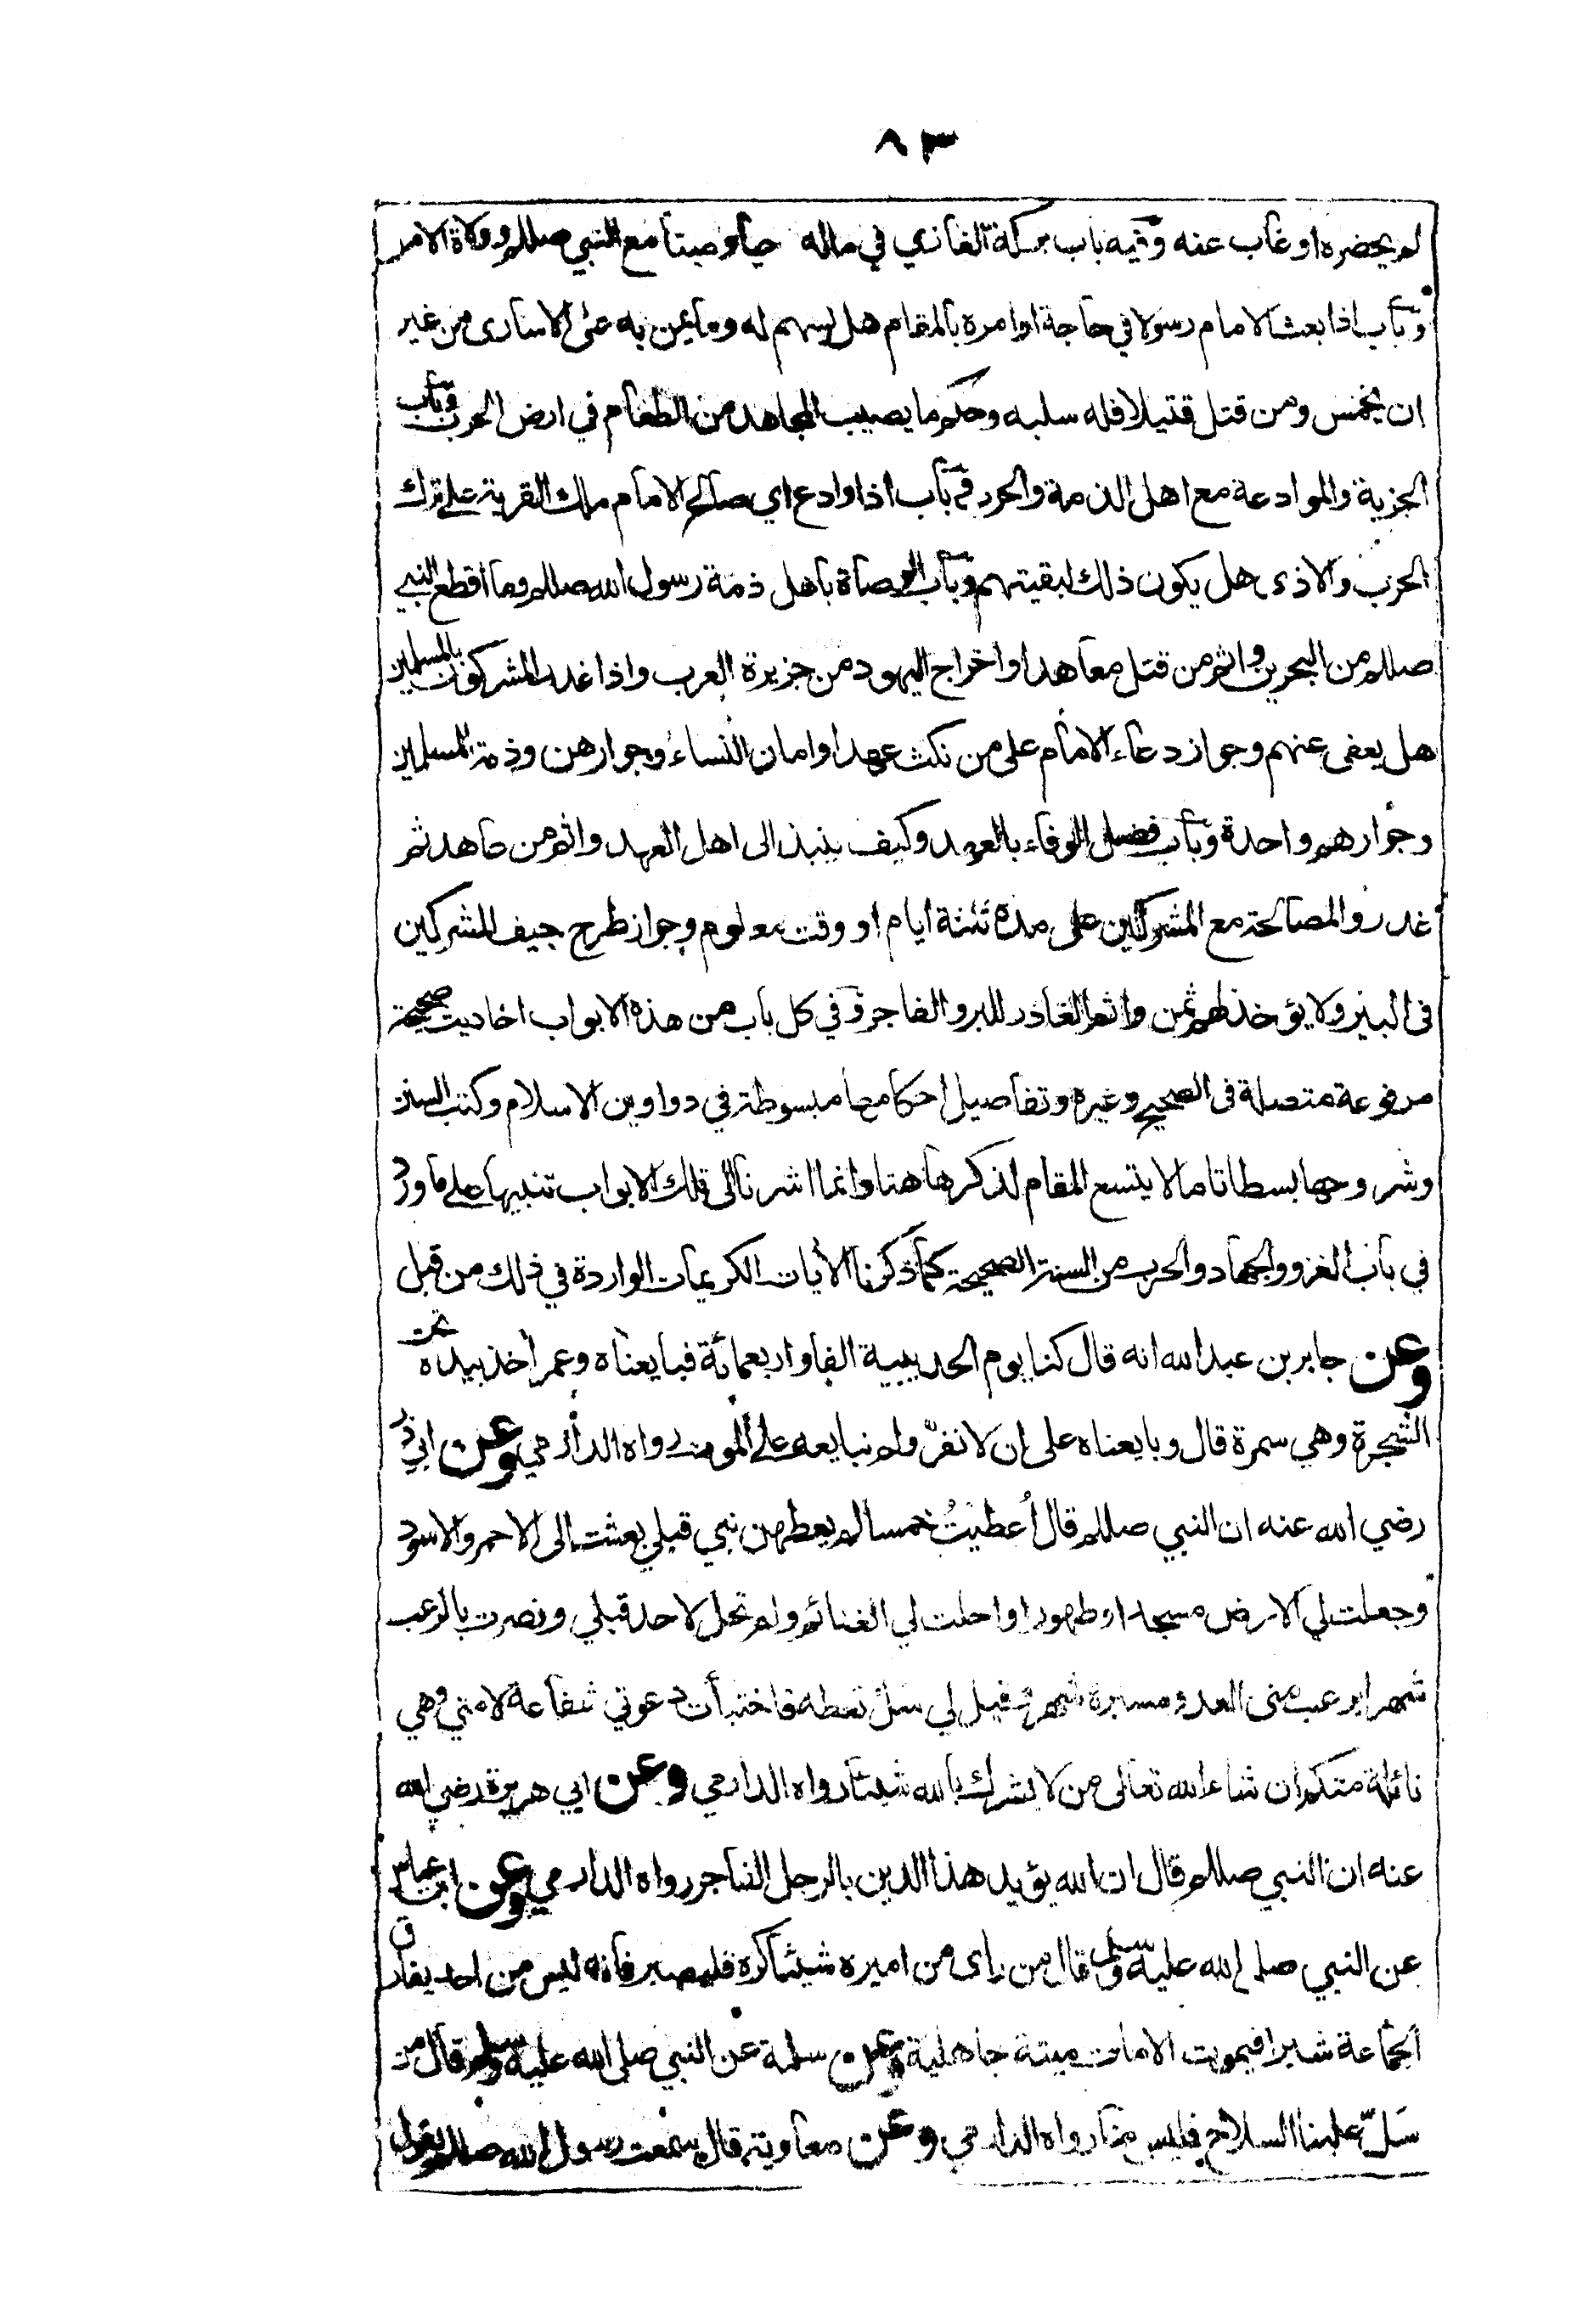 ٨٣
لم يحضره او غاب عنه وفيه باب بركة الغازي في ماله حيا وميتا مع النبي صللم وولاة الامر
وباب اذا بعث الامام رسولا في حاجة او امره بالمقام هل يسهم له وما يمن به على الاسارى من غير
ان يخمس ومن قتل قتيلا فله سلبه وحكم ما يصيب المجاهد من الطعام في ارض الحرب وباب
الجزية والموادعة مع اهل الذمة والحرب وباب اذا وادع اي صالح الامام ملك القرية على ترك
الحرب والاذى هل يكون ذلك لبقيتهم وباب الوصاة باهل ذمة رسول الله صللم وما اقطع النبي
صللم من البحرين واثم من قتل معاهدا واخراج اليهود من جزيرة العرب واذا غدر المشركون بالمسلمين
هل يعفى عنهم وجواز دعاء الامام على من نكث عهدا وامان النساء وجوارهن وذمة المسلمين
وجوارهم واحدة وباب فضل الوفاء بالعهد وكيف ينبذ الى اهل العهد واثم من عاهد ثم
غدر والمصالحة مع المشركين على مدة ثلثة ايام او وقت معلوم وجواز طرح جيف المشركين
فى البئر ولا يؤخذ لهم ثمن واثم الغادر للبر والفاجر وفي كل باب من هذه الابواب احاديث صحيحة
مرفوعة متصلة فى الصحيح وغيره وتفاصيل احكامها مبسوطة في دواوين الاسلام وكتب السنن
وشروحها بسطا تاما لا يتسع المقام لذكرها هنا وانما اشرنا الى تلك الابواب تنبيها على ما ورد
في باب الغزو والجهاد والحرب من السنة الصحيحة كما ذكرنا الأيات الكريمات الواردة في ذلك من قبل
وعن جابر بن عبد الله انه قال كنا يوم الحديبية الفا واربعمائة فبايعناه وعمر أخذ بيده تحت
الشجرة وهي سمرة قال وبايعناه على ان لا نفرّ ولم نبايعه على الموت رواه الدارمي وعن ابي ذر
رضي الله عنه ان النبي صللم قال أُعطيتُ خمسا لم يعطهن نبي قبلي بعثت الى الاحمر والاسود
وجعلت لي الارض مسجدا وطهورا واحلت لي الغنائم ولم تحل لاحد قبلي ونصرت بالرعب
شهرا يرعب منى العدو مسيرة شهر وقيل لي سل تعطه فاختبأت دعوتي شفاعة لامتي وهي
نائلة منكم ان شاء الله تعالى من لا يشرك بالله شيئا رواه الدارمي وعن ابي هريرة رضي الله
عنه ان النبي صللم قال ان الله يؤيد هذا الدين بالرجل الفاجر رواه الدارمي وعن ابن عباس
عن النبي صلى الله عليه وسلم قال من راى من اميره شيئا كره فليصبر فانه ليس من احد يفارق
الجماعة شبرا فيموت الا مات ميتة جاهلية وعن سلمة عن النبي صلى الله عليه وسلم قال من
سَلّ علينا السلاح فليس منا رواه الدارمي وعن معاوية قال سمعت رسول الله صللم يقول